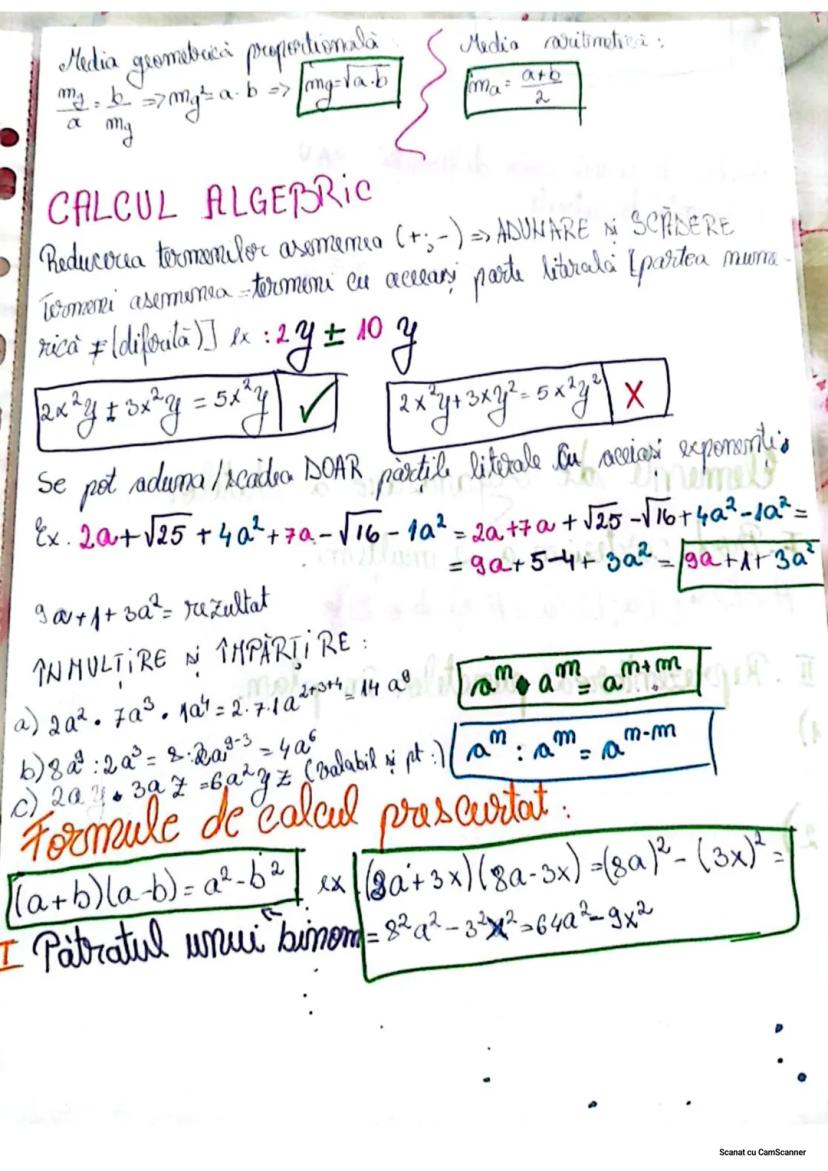 Media geometrică proporțională
mg/a = b/mg => mg² = a·b => mg=√a·b
Media aritmetică:
ma = a+b/2
CALCUL ALGEBRIC
Reducerea termenilor asemenea (+;-) => ADUNARE și SCĂDERE
Termeni asemenea = termeni cu aceeași parte literală [partea nume-
rică ≠ (diferită)] ex : 2y ± 10 y
2x²y ± 3x²y = 5x²y ✓
2x²y + 3xy² = 5x²y² X
Se pot aduna/scădea DOAR părțile literale cu aceiași exponenți
Ex. 2a + √25 + 4a² + 7a - √16 - 1a² = 2a + 7a + √25 - √16 + 4a² - 1a² =
= 9a + 5-4 + 3a² = 9a + 1 + 3a²
9a + 1 + 3a² = rezultat
ÎNMULȚIRE și ÎMPĂRȚIRE :
a) 2a² · 7a³ · 1a⁴ = 2·7·1a²⁺³⁺⁴ = 14 a⁹
aᵐ · aᵐ = aᵐ⁺ᵐ
b) 8a⁹ : 2a³ = 8:2a⁹⁻³ = 4a⁶
aᵐ : aᵐ = aᵐ⁻ᵐ
c) 2a y · 3a z = 6a² y z (valabil și pt :)
Formule de calcul prescurtat :
(a+b)(a-b) = a² - b²
ex (8a + 3x)(8a - 3x) = (8a)² - (3x)² =
= 8²a² - 3²x² = 64a² - 9x²
I Pătratul unui binom
Scanat cu CamScanner